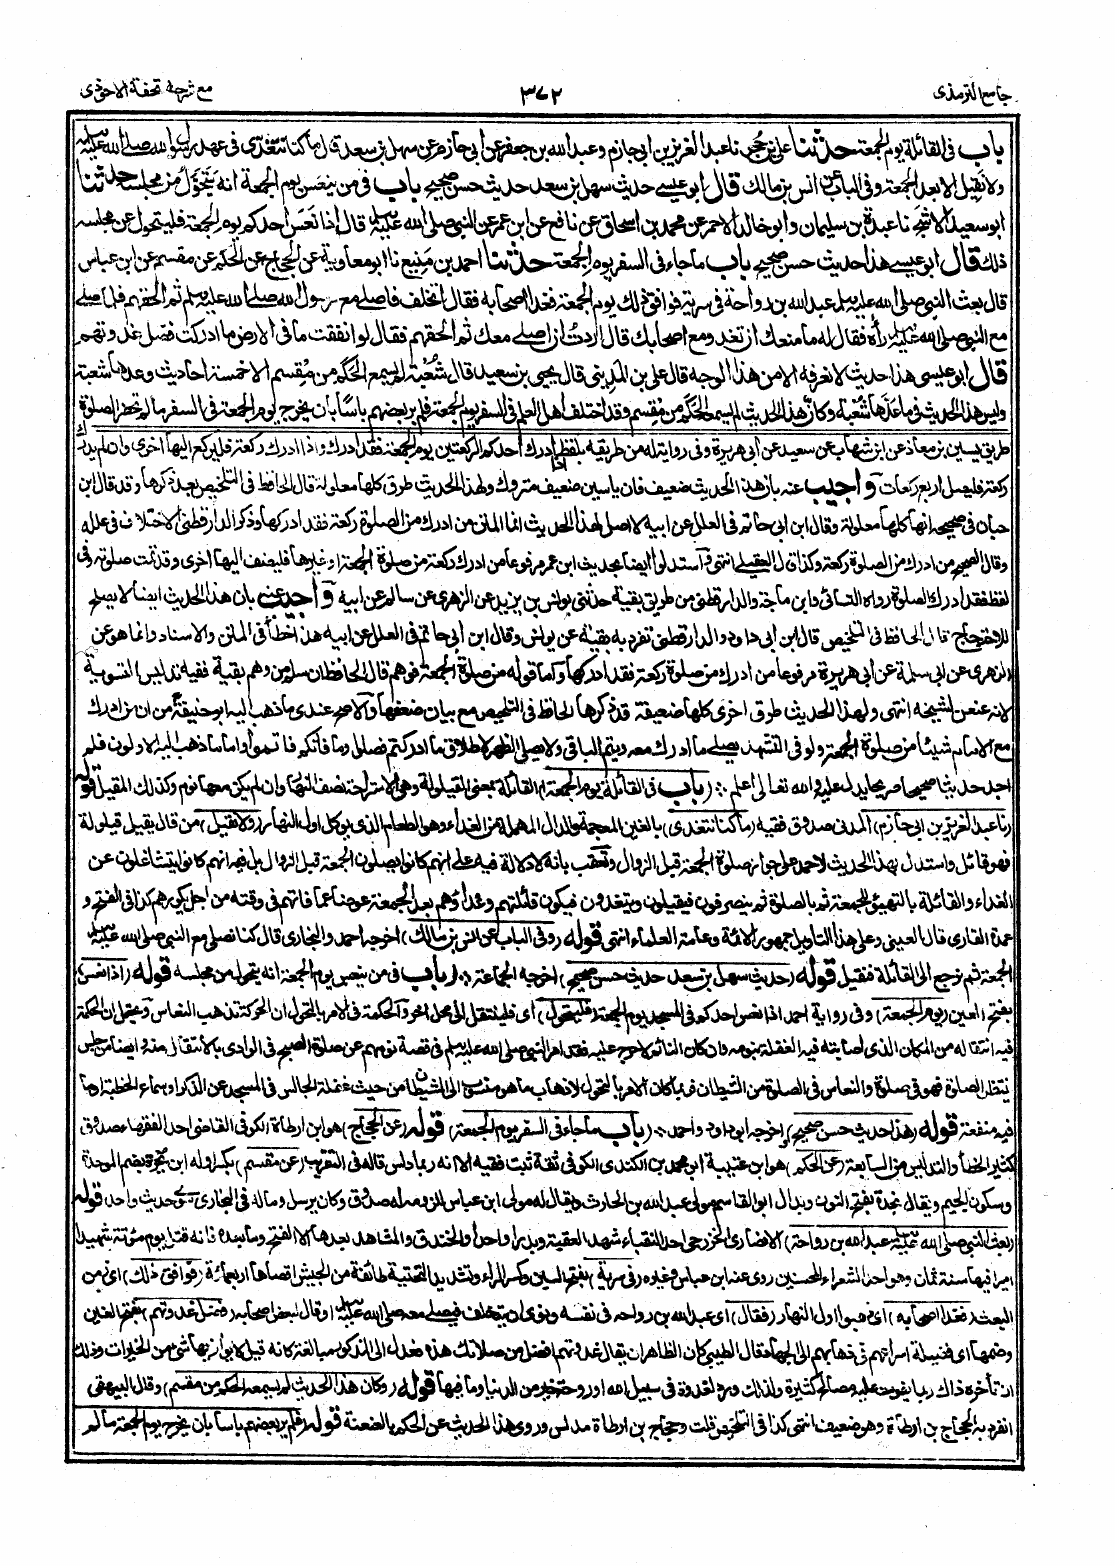 جامع الترمذى
٣٧٢
مع شرحه تحفة الاحوذى
باب فى القائلة يوم الجمعة حدثنا على بن حجر نا عبد العزيز بن ابى حازم وعبد الله بن جعفر عن ابى حازم عن سهل بن سعد قال ما كنا نتغدى فى عهد رسول الله صلى الله عليه وسلم
ولا نقيل الا بعد الجمعة وفى الباب عن انس بن مالك قال ابو عيسى حديث سهل بن سعد حديث حسن صحيح باب فى من ينعس يوم الجمعة انه يتحول من مجلسه حدثنا
ابو سعيد الاشج نا عبدة بن سليمان وابو خالد الاحمر عن محمد بن اسحاق عن نافع عن ابن عمر عن النبى صلى الله عليه وسلم قال اذا نعس احدكم يوم الجمعة فليتحول عن مجلسه
ذلك قال ابو عيسى هذا حديث حسن صحيح باب ما جاء فى السفر يوم الجمعة حدثنا احمد بن منيع نا ابو معاوية عن الحجاج عن الحكم عن مقسم عن ابن عباس
قال بعث النبى صلى الله عليه وسلم عبد الله بن رواحة فى سرية فوافق ذلك يوم الجمعة فغدا اصحابه فقال اتخلف فاصلى مع رسول الله صلى الله عليه وسلم ثم الحقهم فلما صلى
مع النبى صلى الله عليه وسلم رأه فقال له ما منعك ان تغدو مع اصحابك قال اردت ان اصلى معك ثم الحقهم فقال لو انفقت ما فى الارض ما ادركت فضل غدوتهم
قال ابو عيسى هذا حديث لا نعرفه الا من هذا الوجه قال على بن المدينى قال يحيى بن سعيد قال شعبة لم يسمع الحكم من مقسم الا خمسة احاديث وعدها شعبة
وليس هذا الحديث فى ما عدها شعبة وكان هذا الحديث لم يسمعه الحكم من مقسم وقد اختلف اهل العلم فى السفر يوم الجمعة فلم ير بعضهم باسا بان يخرج يوم الجمعة فى السفر ما لم تحضر الصلوة
طريق يسين بن معاذ عن ابن شهاب عن سعيد عن ابى هريرة وفى رواية له من طريقه بلفظ اذا ادرك احدكم الركعتين يوم الجمعة فقد ادرك واذا ادرك ركعة فليركع اليها اخرى وان لم يدرك
ركعة فليصل اربع ركعات واجيب عنه بان هذا الحديث ضعيف فان ياسين ضعيف متروك ولهذا الحديث طرق كلها معلولة قال الحافظ فى التلخيص بعد ذكرها وقد قال ابن
حبان فى صحيحه انها كلها معلولة وقال ابن ابى حاتم فى العلل عن ابيه لا اصل لهذا الحديث انما المتن من ادرك من الصلوة ركعة فقد ادركها وذكر الدارقطنى الاختلاف فى علله
وقال الصحيح من ادرك من الصلوة ركعة وكذا قال العقيلى انتهى واستدلوا ايضا بحديث ابن عمر مرفوعا من ادرك ركعة من صلوة الجمعة او غيرها فليضف اليها اخرى وقد تمت صلوته وفى
لفظ فقد ادرك الصلوة رواه النسائى وابن ماجة والدارقطنى من طريق بقية حدثنى يونس بن يزيد عن الزهرى عن سالم عن ابيه واجيب عنه بان هذا الحديث ايضا لا يصلح
للاحتجاج قال الحافظ فى التلخيص قال ابن ابى داود والدارقطنى تفرد به بقية عن يونس وقال ابن ابى حاتم فى العلل عن ابيه هذا خطأ فى المتن والاسناد وانما هو عن
الزهرى عن ابى سلمة عن ابى هريرة مرفوعا من ادرك من صلوة ركعة فقد ادركها واما قوله من صلوة الجمعة فوهم قال الحافظ ان سلم من وهم بقية ففيه تدليس التسوية
لانه عنعن لشيخه انتهى ولهذا الحديث طرق اخرى كلها ضعيفة قد ذكرها الحافظ فى التلخيص مع بيان ضعفها والاصح عندى ما ذهب اليه ابو حنيفة من ان من ادرك
مع الامام شيئا من صلوة الجمعة ولو فى التشهد يصلى ما ادرك معه ويتم الباقى ولا يصلى الظهر لاطلاق ما ادركتم فصلوا وما فاتكم فاتموا واما ما ذهب اليه الاولون فلم
اجد حديثا صحيحا صريحا يدل عليه والله تعالى اعلم (باب فى القائلة يوم الجمعة) القائلة بمعنى القيلولة وهى الاستراحة نصف النهار وان لم يكن معها نوم وكذلك المقيل قوله
(نا عبد العزيز بن ابى حازم) المدنى صدوق فقيه (ما كنا نتغدى) بالغين المعجمة والدال المهملة من الغداء وهو الطعام الذى يوكل اول النهار (ولا نقيل) من قال يقيل قيلولة
فهو قائل واستدل بهذا الحديث لاحمد على جواز صلوة الجمعة قبل الزوال وتعقب بانه لا دلالة فيه على انهم كانوا يصلون الجمعة قبل الزوال بل فيه انهم كانوا يتشاغلون عن
الغداء والقائلة بالتهيئ للجمعة ثم بالصلوة ثم ينصرفون فيقيلون ويتغدون فيكون قائلتهم وغداؤهم بعد الجمعة عوضا عما فاتهم فى وقته من اجل بكورهم كذا فى الفتح و
عمدة القارى قال العينى وعلى هذا التاويل جمهور الائمة وعامة العلماء انتهى قوله (وفى الباب عن انس بن مالك) اخرجه احمد والبخارى قال كنا نصلى مع النبى صلى الله عليه وسلم
الجمعة ثم نرجع الى القائلة فنقيل قوله (حديث سهل بن سعد حديث حسن صحيح) اخرجه الجماعة (باب فى من ينعس يوم الجمعة انه يتحول من مجلسه قوله (اذا نعس)
بفتح العين (يوم الجمعة) وفى رواية احمد اذا نعس احدكم فى المسجد يوم الجمعة (فليتحول) اى فلينتقل الى محل اخر والحكمة فى الامر بالتحول ان الحركة تذهب النعاس ويحتمل ان الحكمة
فيه انتقاله من المكان الذى اصابته فيه الغفلة بنومه وان كان النائم لا حرج عليه فقد امر النبى صلى الله عليه وسلم فى قصة نومهم عن صلوة الصبح فى الوادى بالانتقال منه وايضا من جلس
ينتظر الصلوة فهو فى صلوة والنعاس فى الصلوة من الشيطان فربما كان الامر بالتحول لاذهاب ما هو منسوب الى الشيطان من حيث غفلة الجالس فى المسجد عن الذكر او سماع الخطبة او ما
فيه منفعة قوله (هذا حديث حسن صحيح) اخرجه ابو داود واحمد (باب ما جاء فى السفر يوم الجمعة) قوله (عن الحجاج) هو ابن ارطاة الكوفى القاضى احد الفقهاء صدوق
كثير الخطأ والتدليس من السابعة (عن الحكم) هو ابن عتيبة ابو محمد بن الكندى الكوفى ثقة ثبت فقيه الا انه ربما دلس قاله فى التقريب (عن مقسم) بكسر اوله ابن بجرة بضم الموحدة
وسكون الجيم ويقال نجدة بفتح النون وبدال ابو القاسم مولى عبد الله بن الحارث ويقال له مولى ابن عباس للزومه له صدوق وكان يرسل وماله فى البخارى سوى حديث واحد قوله
(بعث النبى صلى الله عليه وسلم عبد الله بن رواحة) الانصارى الخزرجى احد النقباء شهد العقبة وبدرا واحدا والخندق والمشاهد بعدها الا الفتح وما بعده فانه قتل يوم موتة شهيدا
اميرا فيها سنة ثمان وهو احد الشعراء المحسنين روى عنه ابن عباس وغيره (فى سرية) بفتح السين وكسر الراء وتشديد التحتية طائفة من الجيش اقصاها اربعمائة (فوافق ذلك) اى زمن
البعث (فغدا اصحابه) اى ذهبوا اول النهار (فقال) اى عبد الله بن رواحه فى نفسه ونوى ان يتخلف فيصلى معه صلى الله عليه وسلم او قال لبعض اصحابه (فضل غدوتهم) بفتح الغين
وضمها اى فضيلة اسراعهم فى ذهابهم الى الجهاد قال الطيبى كان الظاهر ان يقال غدوتهم افضل من صلاتك هذه فعدل الى المذكور مبالغة كانه قيل لا يوازيها شئ من الخيرات وذلك
ان تأخره ذاك ربما يفوت عليه مصالح كثيرة ولذلك ورد لغدوة فى سبيل الله او روحة خير من الدنيا وما فيها قوله (وكان هذا الحديث لم يسمعه الحكم من مقسم) وقال البيهقى
انفرد به الحجاج بن ارطاة وهو ضعيف انتهى كذا فى التلخيص قلت وحجاج بن ارطاة مدلس وروى هذا الحديث عن الحكم بالعنعنة قوله (فلم ير بعضهم باسا بان يخرج يوم الجمعة ما لم